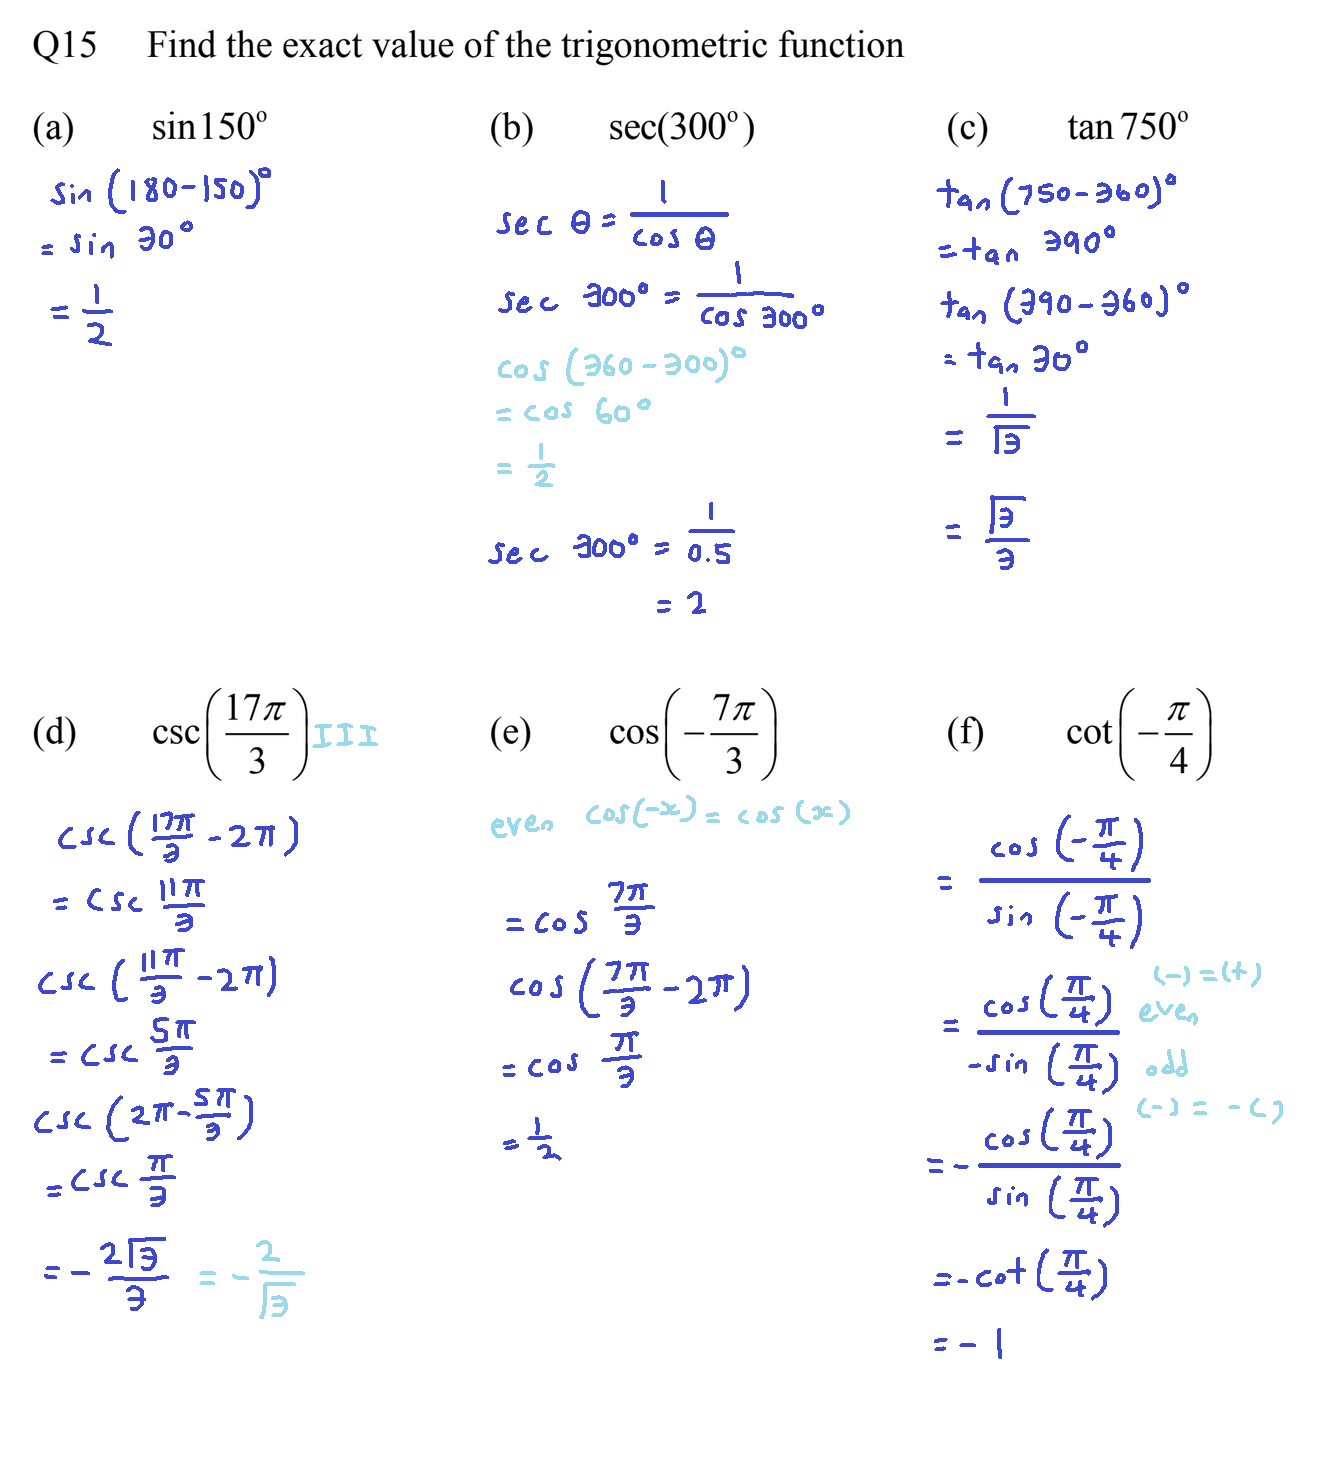 Q15 Find the exact value of the trigonometric function
(a) sin 150°
sin (180-150)°
= sin 30°
= 1/2
(b) sec(300°)
sec θ = 1/cos θ
sec 300° = 1/cos 300°
cos (360-300)°
= cos 60°
= 1/2
sec 300° = 1/0.5
= 2
(c) tan 750°
tan (750-360)°
= tan 390°
tan (390-360)°
= tan 30°
= 1/√3
= √3/3
(d) csc(17π/3) III
csc (17π/3 - 2π)
= csc 11π/3
csc (11π/3 - 2π)
= csc 5π/3
csc (2π - 5π/3)
= csc π/3
= - 2√3/3 = - 2/√3
(e) cos(-7π/3)
even cos(-x) = cos (x)
= cos 7π/3
cos (7π/3 - 2π)
= cos π/3
= 1/2
(f) cot(-π/4)
= cos (-π/4)/sin (-π/4)
(-) = (+)
= cos(π/4)/-sin (π/4) even
odd
(-) = -( )
= - cos(π/4)/sin (π/4)
= - cot (π/4)
= - 1